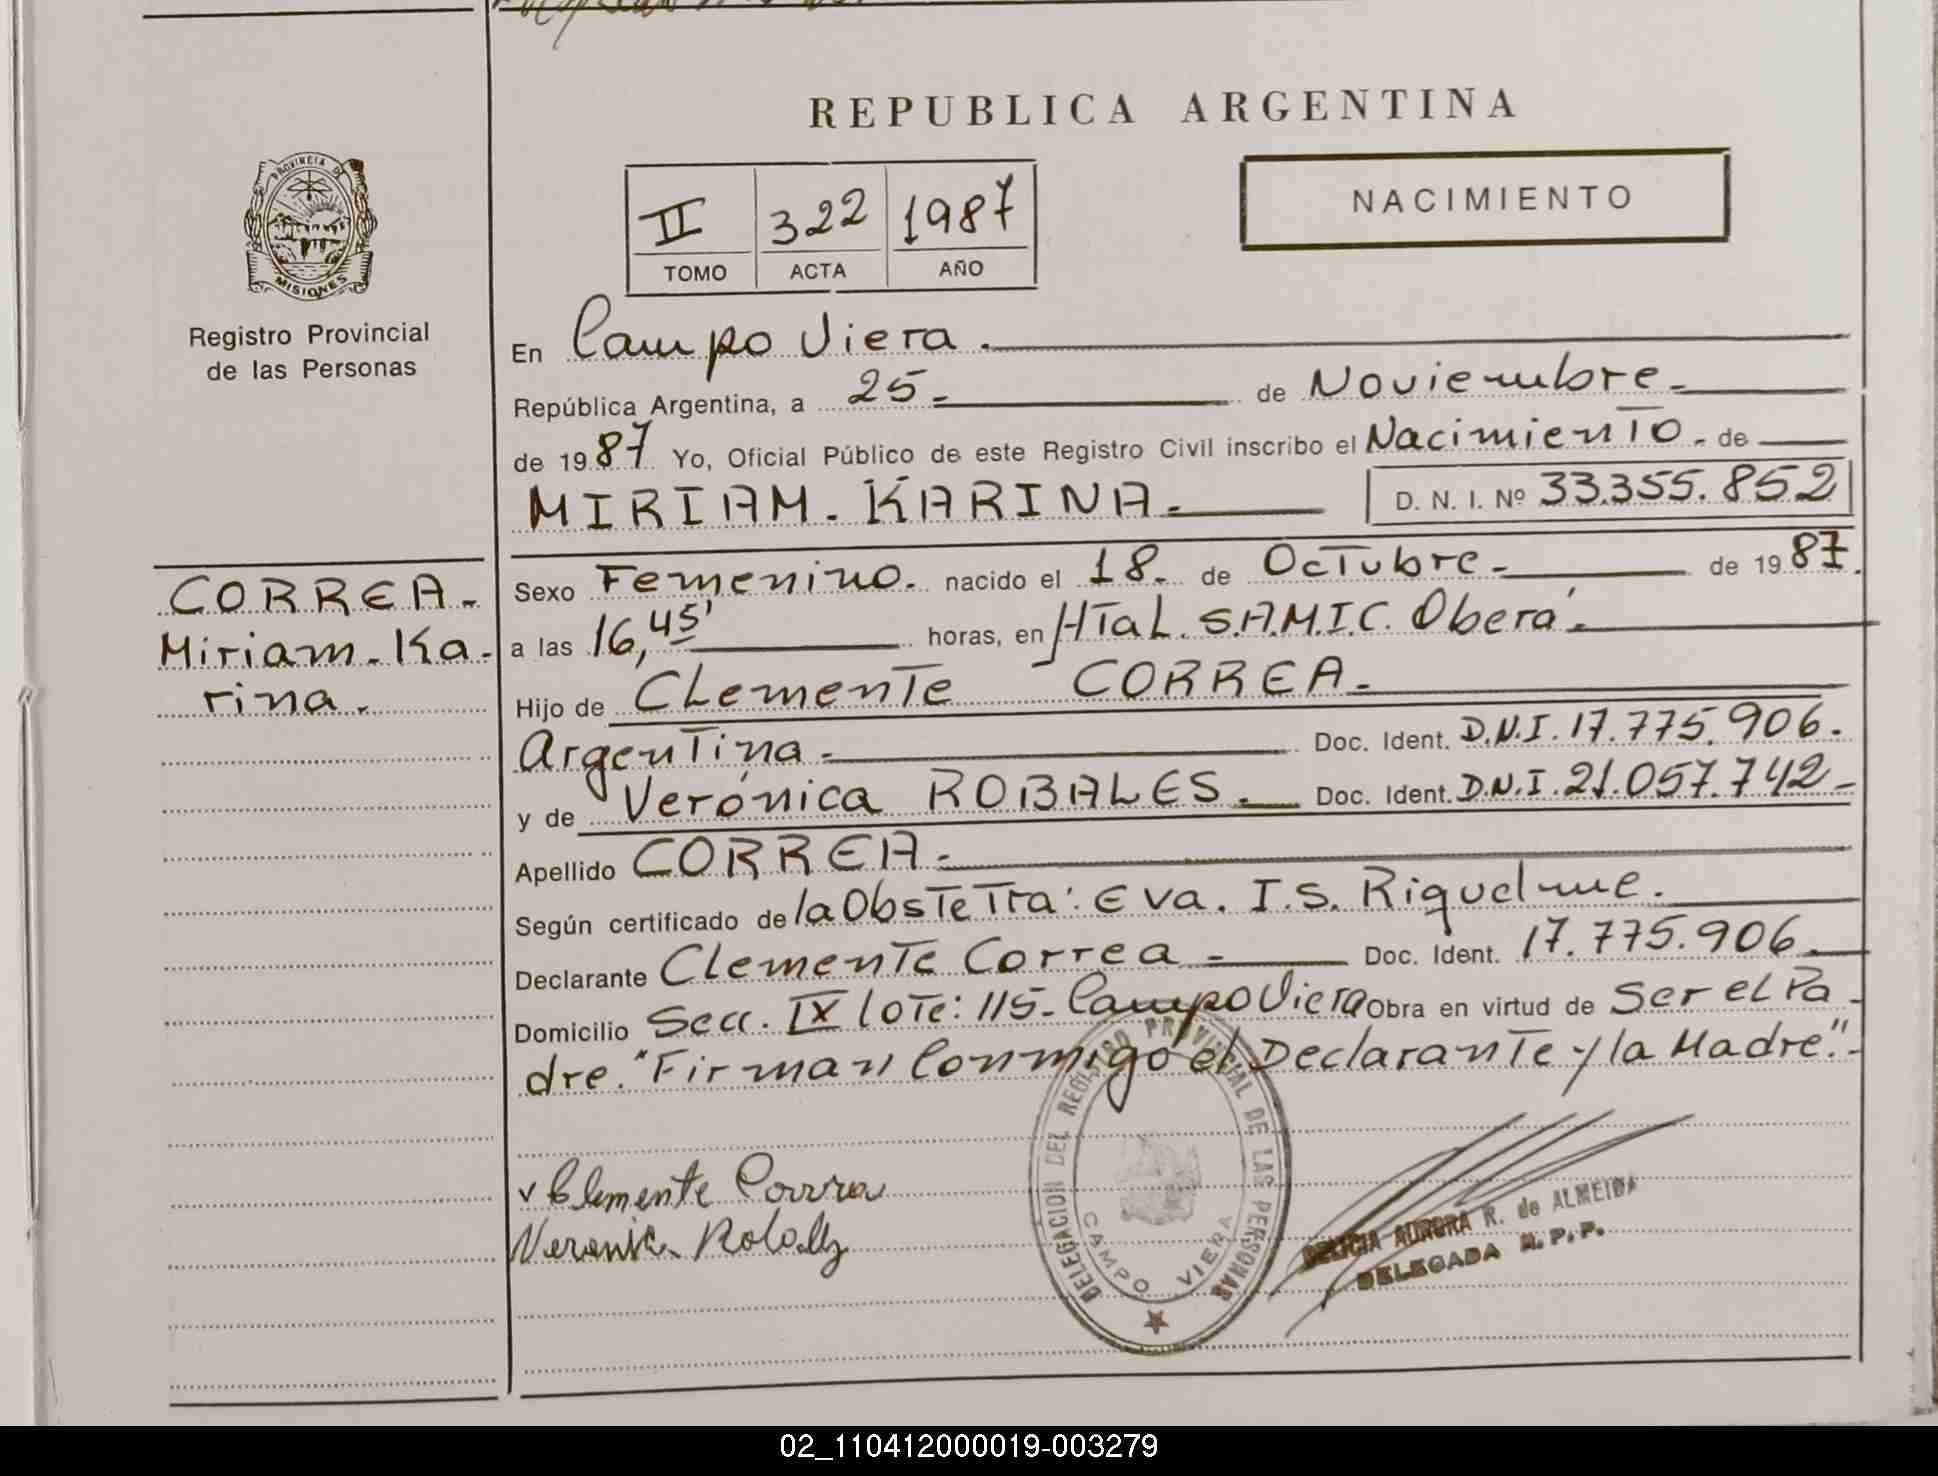 REPUBLICA ARGENTINA
PROVINCIA DE
MISIONES
Registro Provincial
de las Personas
II 322 1987
TOMO ACTA AÑO
NACIMIENTO
En Campo Viera.
República Argentina, a 25 de Noviembre
de 1987 Yo, Oficial Público de este Registro Civil inscribo el Nacimiento. de
MIRIAM. KARINA. D. N. I. Nº 33.355.852
CORREA.
Miriam. Ka-
rina.
Sexo Femenino. nacido el 18. de Octubre de 1987.
a las 16,45' horas, en HTaL. S.A.M.I.C. Oberá.
Hijo de Clemente CORREA.
Argentina. Doc. Ident. D.N.I. 17.775.906.
y de Verónica ROBALES. Doc. Ident. D.N.I. 21.057.742
Apellido CORREA.
Según certificado de la Obstetra: Eva. I.S. Riquelme.
Declarante Clemente Correa Doc. Ident. 17.775.906.
Domicilio Secc. IX lote: 115- Campo Viera Obra en virtud de Ser el Pa-
dre. "Firman Conmigo el Declarante y la Madre".
Clemente Correa
DELEGACION DEL REGISTRO PROVINCIAL DE LAS PERSONAS
CAMPO VIERA
AURORA R. de ALMEIDA
DELEGADA R. P. P.
02_110412000019-003279